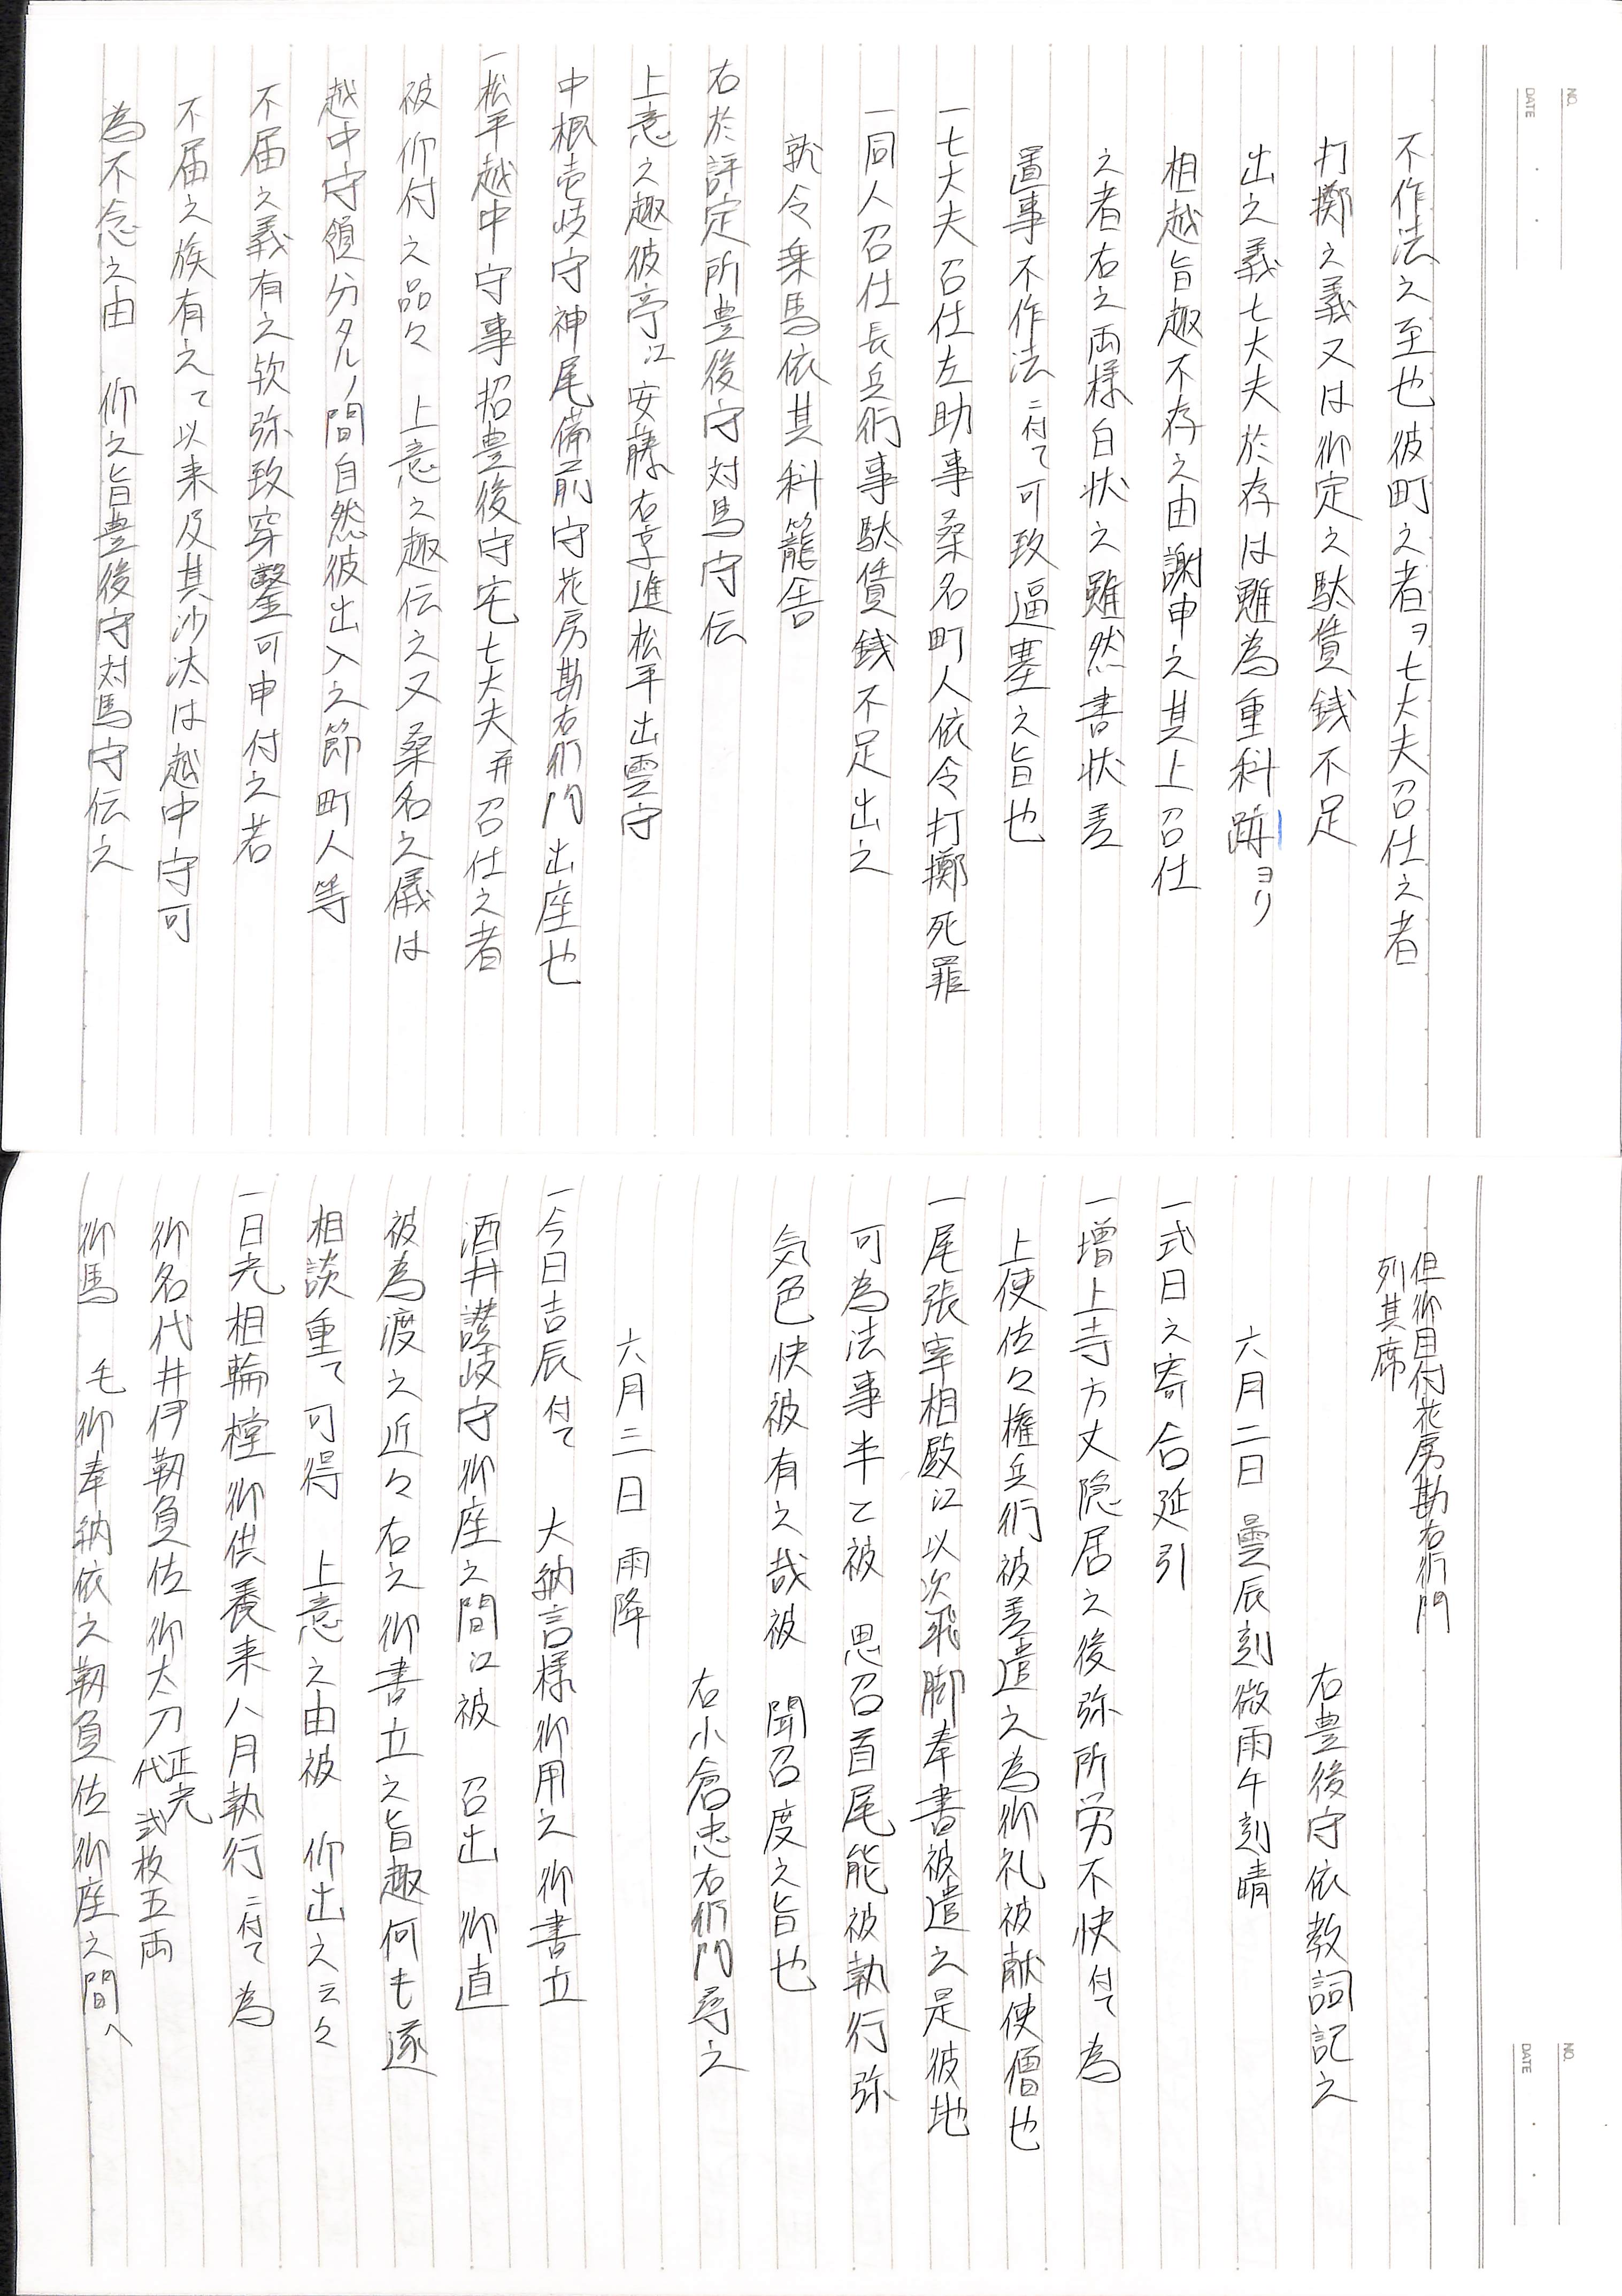 NO.
DATE
不作法之至也彼町之者ヲ七大夫召仕之者
打擲之義又は御定之駄賃銭不足
出之義七大夫於存は雖為重科跡ヨリ
相越旨趣不存之由謝申之其上召仕
之者右之両様白状之雖然書状差
置事不作法ニ付て可致逼塞之旨也
一七大夫召仕左助事桑名町人依令打擲死罪
一同人召仕長兵衛事駄賃銭不足出之
就令乗馬依其科籠舎
右於評定所豊後守対馬守伝
上意之趣彼亭江安藤右京進松平出雲守
中根壱岐守神尾備前守花房勘右衛門出座也
一松平越中守事招豊後守宅七大夫并召仕之者
被仰付之品々 上意之趣伝之又桑名之儀は
越中守領分タルノ間自然彼出入之節町人等
不届之義有之欤弥致穿鑿可申付之若
不届之族有之て以来及其沙汰は越中守可
為不念之由 仰之旨豊後守対馬守伝之
NO.
DATE
但御目付花房勘右衛門
列其席
右豊後守依教詞記之
六月二日 曇辰刻微雨午刻晴
一式日之寄合延引
一増上寺方丈隠居之後弥所労不快付て為
上使佐々権兵衛被差遣之為御礼被献使僧也
一尾張宰相殿江以次飛脚奉書被遣之是彼地
可為法事半と被 思召首尾能被執行弥
気色快被有之哉被 聞召度之旨也
右小倉忠右衛門尋之
六月三日 雨降
一今日吉辰付て 大納言様御用之御書立
酒井讃岐守御座之間江被 召出 御直
被為渡之近々右之御書立之旨趣何も遂
相談重て可得 上意之由被 仰出之云々
一日光相輪橖御供養来八月執行ニ付て為
御名代井伊靱負佐御太刀正光代弐枚五両
御馬 毛御奉納依之靱負佐御座之間へ